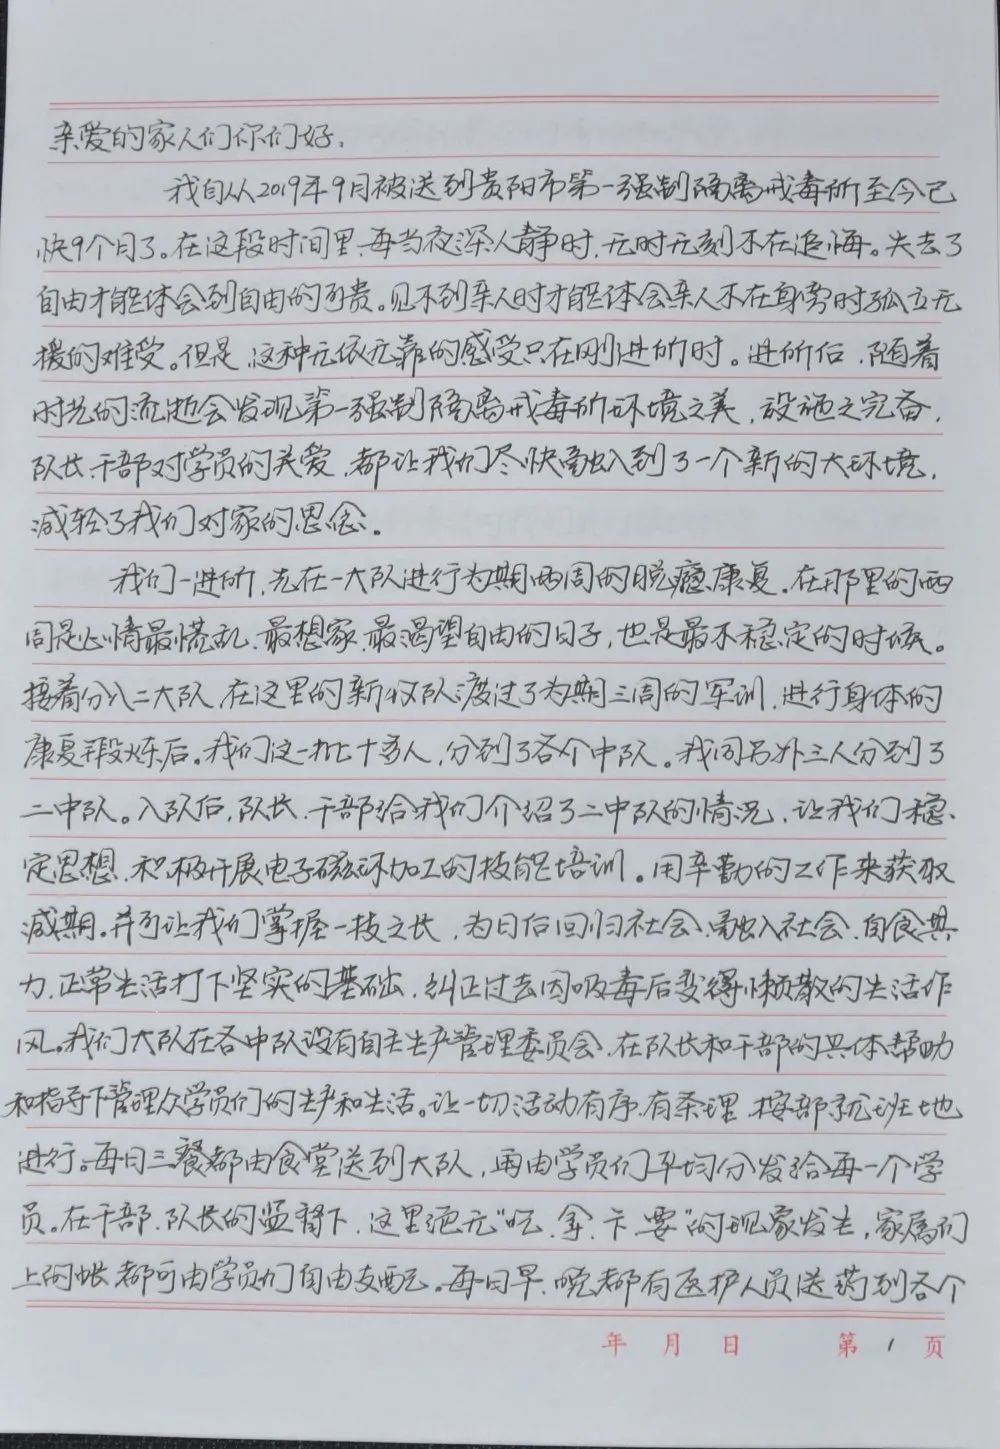 亲爱的家人们你们好.
我自从2019年9月被送到贵阳市第一强制隔离戒毒所至今已
快9个月了。在这段时间里、每当夜深人静时、无时无刻不在追悔。失去了
自由才能体会到自由的可贵。见不到亲人时才能体会亲人不在身旁时孤立无
援的难受。但是、这种无依无靠的感受只在刚进所时。进所后、随着
时光的流逝会发现第一强制隔离戒毒所环境之美、设施之完备,
队长、干部对学员的关爱、都让我们尽快融入到了一个新的大环境,
减轻了我们对家的思念。
我们一进所、先在一大队进行为期两周的脱瘾康复。在那里的两
周是心情最慌乱、最想家、最渴望自由的日子,也是最不稳定的时候。
接着分入二大队、在这里的新收队渡过了为期三周的军训、进行身体的
康复锻炼后。我们这一批十多人,分到了各个中队。我同另外三人分到了
二中队。入队后,队长、干部给我们介绍了二中队的情况、让我们稳
定思想、积极开展电子磁环加工的技能培训。用辛勤的工作来获取
减期。并可让我们掌握一技之长、为日后回归社会、融入社会、自食其
力、正常生活打下坚实的基础、纠正过去因吸毒后变得懒散的生活作
风。我们大队在各中队设有自主生产管理委员会、在队长和干部的具体帮助
和指导下管理众学员们的生产和生活。让一切活动有序、有条理、按部就班地
进行。每日三餐都由食堂送到大队,再由学员们平均分发给每一个学
员。在干部、队长的监督下、这里绝无“吃、拿、卡、要”的现象发生,家属们
上的帐都可由学员们自由支配。每日早、晚都有医护人员送药到各个
年 月 日 第 1 页